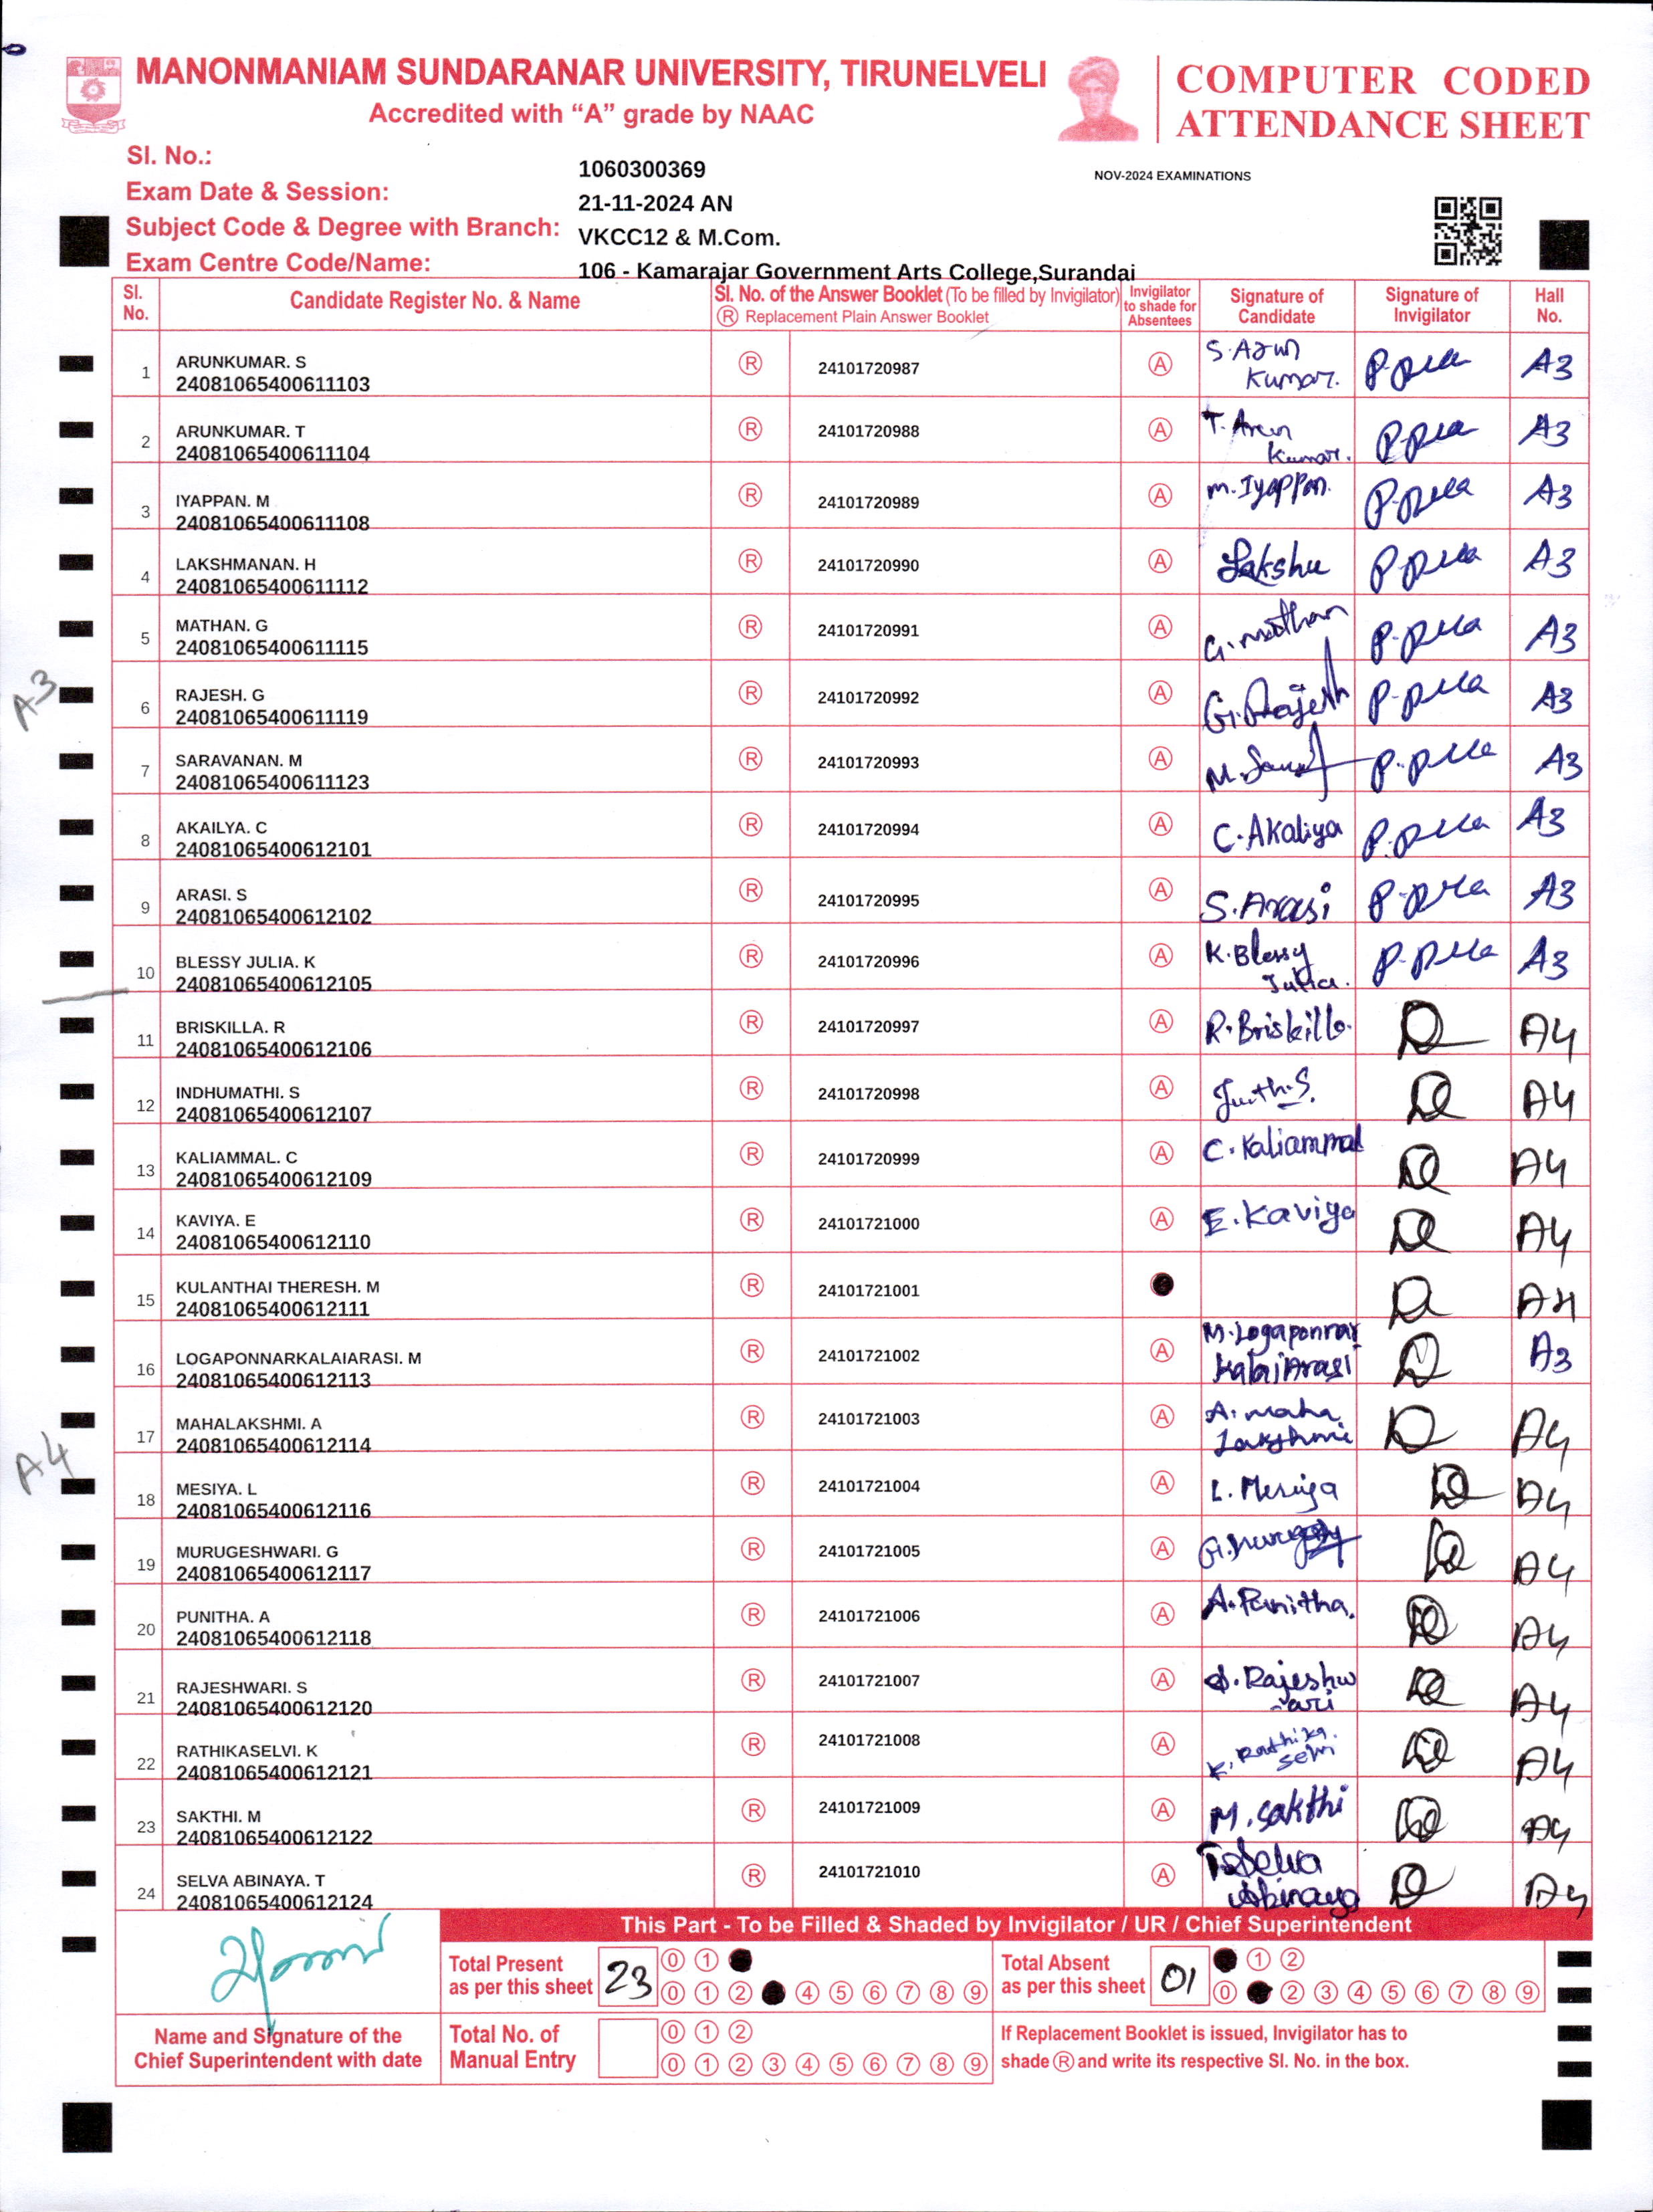 MANONMANIAM SUNDARANAR UNIVERSITY, TIRUNELVELI
Accredited with “A” grade by NAAC
COMPUTER CODED
ATTENDANCE SHEET
Sl. No.: 1060300369
NOV-2024 EXAMINATIONS
Exam Date & Session: 21-11-2024 AN
Subject Code & Degree with Branch: VKCC12 & M.Com.
Exam Centre Code/Name: 106 - Kamarajar Government Arts College,Surandai
Sl. No. Candidate Register No. & Name Sl. No. of the Answer Booklet (To be filled by Invigilator) Ⓡ Replacement Plain Answer Booklet Invigilator to shade for Absentees Signature of Candidate Signature of Invigilator Hall No.
1 ARUNKUMAR. S Ⓡ 24101720987 Ⓐ S. Arun Kumar. A3
24081065400611103
2 ARUNKUMAR. T Ⓡ 24101720988 Ⓐ T. Arun Kumar. A3
24081065400611104
3 IYAPPAN. M Ⓡ 24101720989 Ⓐ M. Iyappan. A3
24081065400611108
4 LAKSHMANAN. H Ⓡ 24101720990 Ⓐ Lakshu A3
24081065400611112
5 MATHAN. G Ⓡ 24101720991 Ⓐ G. mathan A3
24081065400611115
A3
6 RAJESH. G Ⓡ 24101720992 Ⓐ G. Rajesh A3
24081065400611119
7 SARAVANAN. M Ⓡ 24101720993 Ⓐ A3
24081065400611123
8 AKAILYA. C Ⓡ 24101720994 Ⓐ C. Akaliya A3
24081065400612101
9 ARASI. S Ⓡ 24101720995 Ⓐ S. Arasi A3
24081065400612102
10 BLESSY JULIA. K Ⓡ 24101720996 Ⓐ K. Blessy Julia. A3
24081065400612105
11 BRISKILLA. R Ⓡ 24101720997 Ⓐ R. Briskilla. A4
24081065400612106
12 INDHUMATHI. S Ⓡ 24101720998 Ⓐ A4
24081065400612107
13 KALIAMMAL. C Ⓡ 24101720999 Ⓐ C. Kaliammal A4
24081065400612109
14 KAVIYA. E Ⓡ 24101721000 Ⓐ E. Kaviya A4
24081065400612110
15 KULANTHAI THERESH. M Ⓡ 24101721001 A4
24081065400612111
16 LOGAPONNARKALAIARASI. M Ⓡ 24101721002 Ⓐ M. Logaponnar Kalai Arasi A3
24081065400612113
17 MAHALAKSHMI. A Ⓡ 24101721003 Ⓐ A. maha Lakshmi A4
24081065400612114
A4
18 MESIYA. L Ⓡ 24101721004 Ⓐ L. Mesiya A4
24081065400612116
19 MURUGESHWARI. G Ⓡ 24101721005 Ⓐ A4
24081065400612117
20 PUNITHA. A Ⓡ 24101721006 Ⓐ A. Punitha. A4
24081065400612118
21 RAJESHWARI. S Ⓡ 24101721007 Ⓐ S. Rajeshwari A4
24081065400612120
22 RATHIKASELVI. K Ⓡ 24101721008 Ⓐ K. Rathika A4
24081065400612121
23 SAKTHI. M Ⓡ 24101721009 Ⓐ M. Sakthi A4
24081065400612122
24 SELVA ABINAYA. T Ⓡ 24101721010 Ⓐ T. Selva Abinaya A4
24081065400612124
This Part - To be Filled & Shaded by Invigilator / UR / Chief Superintendent
Total Present as per this sheet 23 0 1
0 1 2 4 5 6 7 8 9
Total Absent as per this sheet 01 1 2
0 2 3 4 5 6 7 8 9
Name and Signature of the
Chief Superintendent with date
Total No. of Manual Entry 0 1 2
0 1 2 3 4 5 6 7 8 9
If Replacement Booklet is issued, Invigilator has to
shade Ⓡ and write its respective Sl. No. in the box.